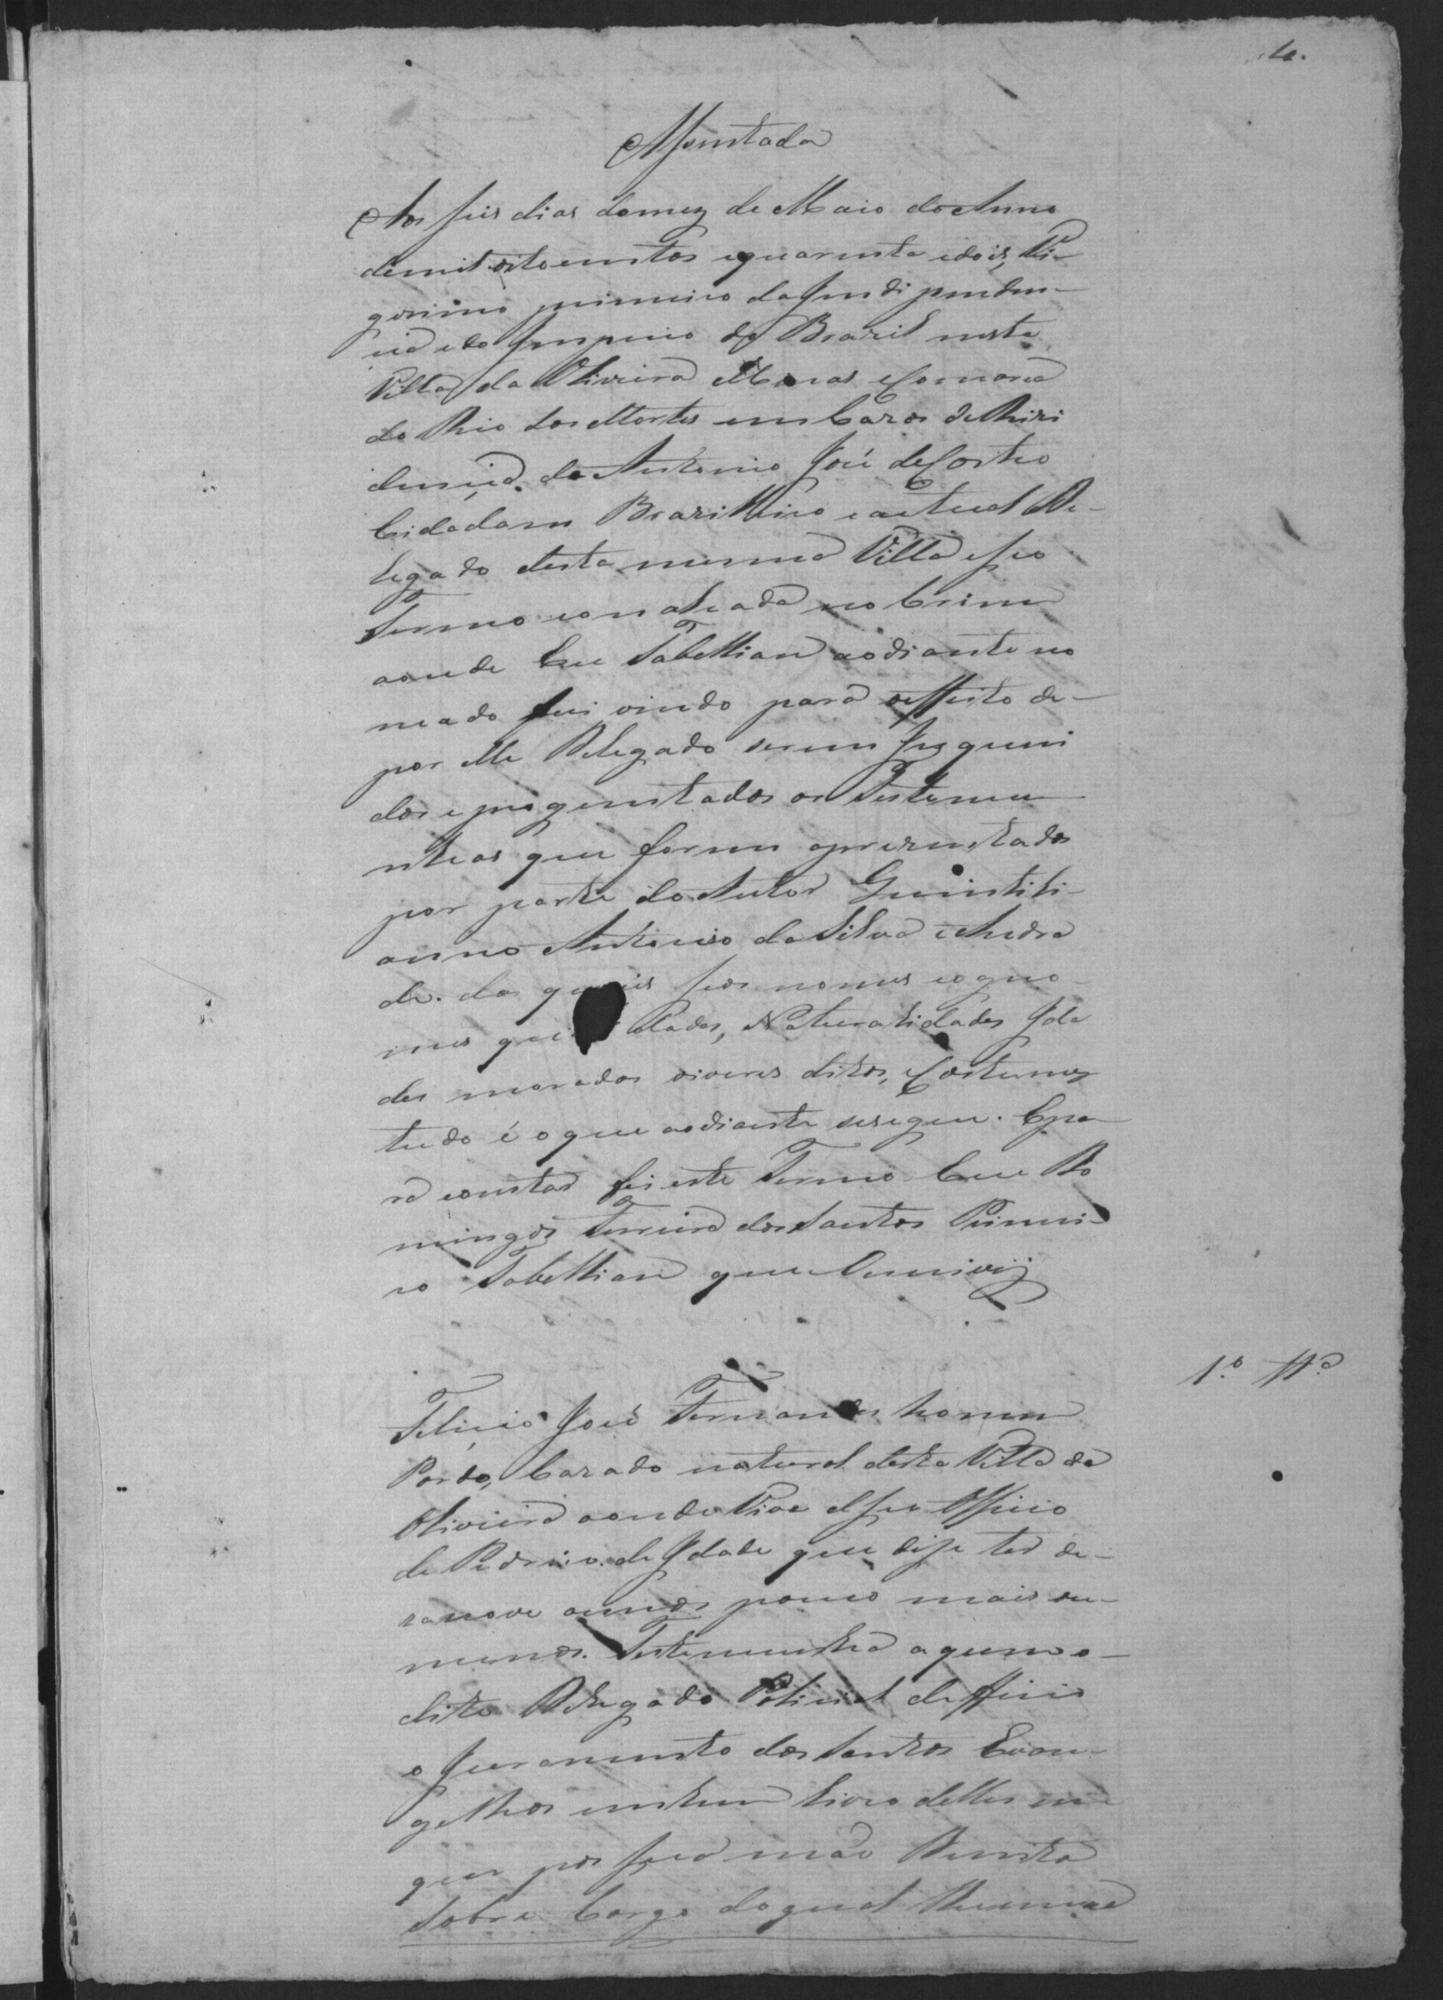 4.
Assentada
Aos seis dias do mez de Maio do Anno
de mil oito centos e quarenta e dois, Vi-
gessimo primeiro da Independen-
cia e do Imperio do Brazil nesta
Villa da Oliveira Minas e Comarca
do Rio das Mortes em Cazas de Rezi
dencia de Antonio José de Castro
Cidadam Brazilleiro e actual De-
legado desta mesma Villa e seo
Termo com alsada no Crime
aonde Eu Tabelliam ao diante no
meado fui vindo para effeito de-
por elle Delegado serem Inqueri
dos e preguntados os Testemu-
nhas que forem aprezentados
por parte do Autor Quintili-
anno Antonio da Silva e Andra
de. da quais seos nomes cogno-
mes que lados, Naturalidades Ida
des moradas viveres ditos, e Costumes
tudo é o que ao diante se segue. E pa-
ra constar fis este Termo Eu Do
mingos Ferreira dos Santos Primei-
ro Tabelliam que Escrivij
1.ª Tt.ª
Felicio José Fernandes homem
Pardo, Cazado natural desta Villa da
Oliveira aonde Vive de seu Officio
de Pedreiro de Idade que disse ter de-
zanove annos pouco mais ou-
menos. Testemunha a quem o-
dito Delegado Policial defferio
o Juramento dos Santos Evan-
gelhos em hum Livro delles em
que pos sua mão Direita
sobre Cargo do qual